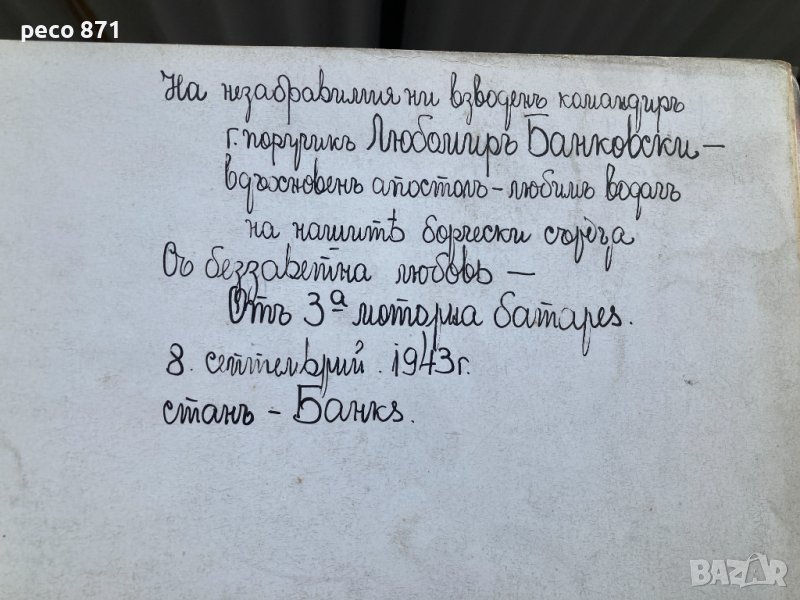 peco 871
На незабравимия ни взводенъ командиръ
г. поручикъ Любомиръ Банковски –
вдъхновенъ апостолъ – любимъ водачъ
на нашитѣ борчески сърдца
Съ беззаветна любовь –
Отъ 3а моторна батарея.
8. септемврий. 1943 г.
станъ – Банкя.
BAZAR